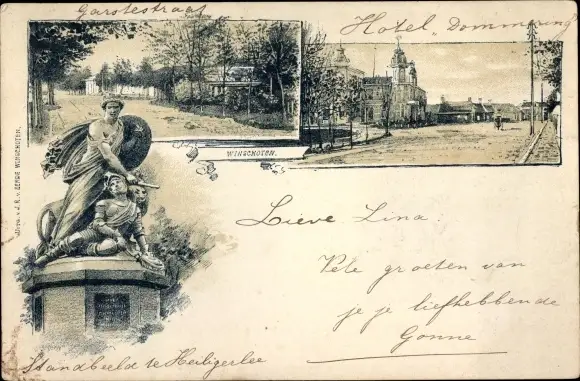 Garstestraat
Hotel "Dommering"
WINSCHOTEN.
Uitg. v. J.R. v. DERDE WINSCHOTEN.
Lieve Lina.
Vele groeten van
je je liefhebbende
Gonne
Standbeeld te Heiligerlee